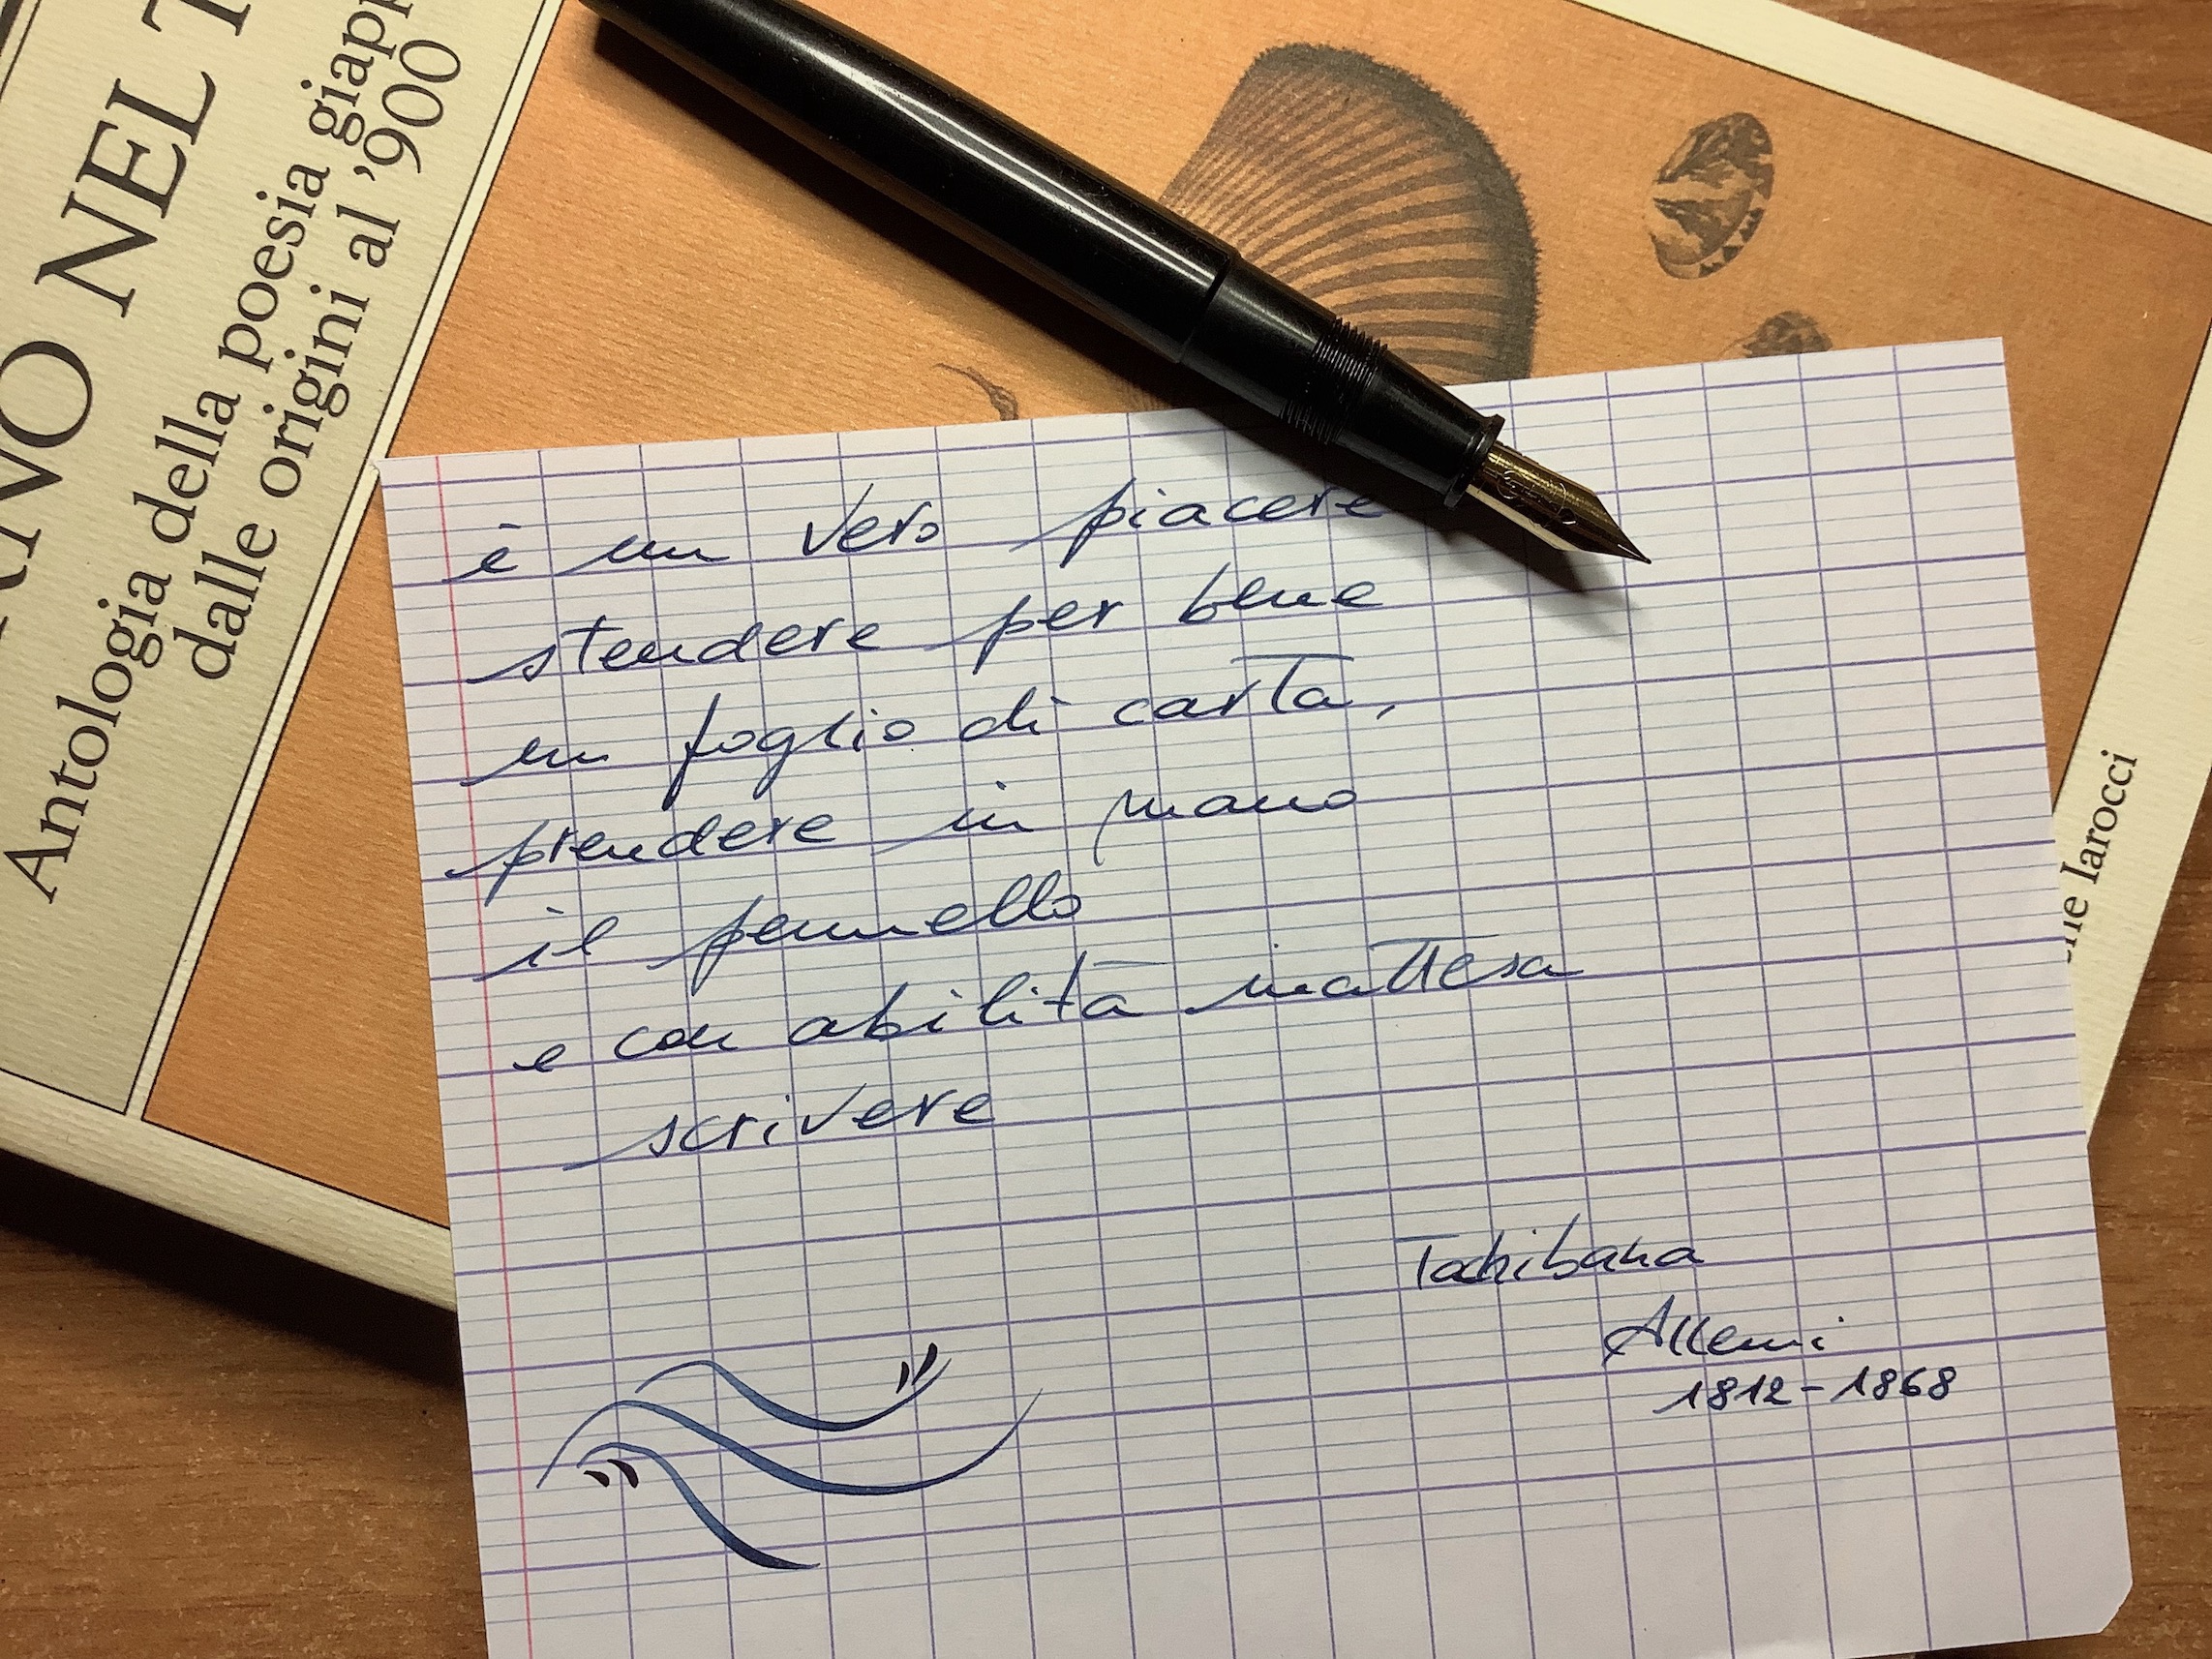 ANO NEL T
Antologia della poesia giapp
dalle origini al '900
è un vero piacere
stendere per bene
un foglio di carta,
prendere in mano
il pennello
e con abilità inattesa
scrivere
Tachibana
Akemi
1812-1868
che Iarocci